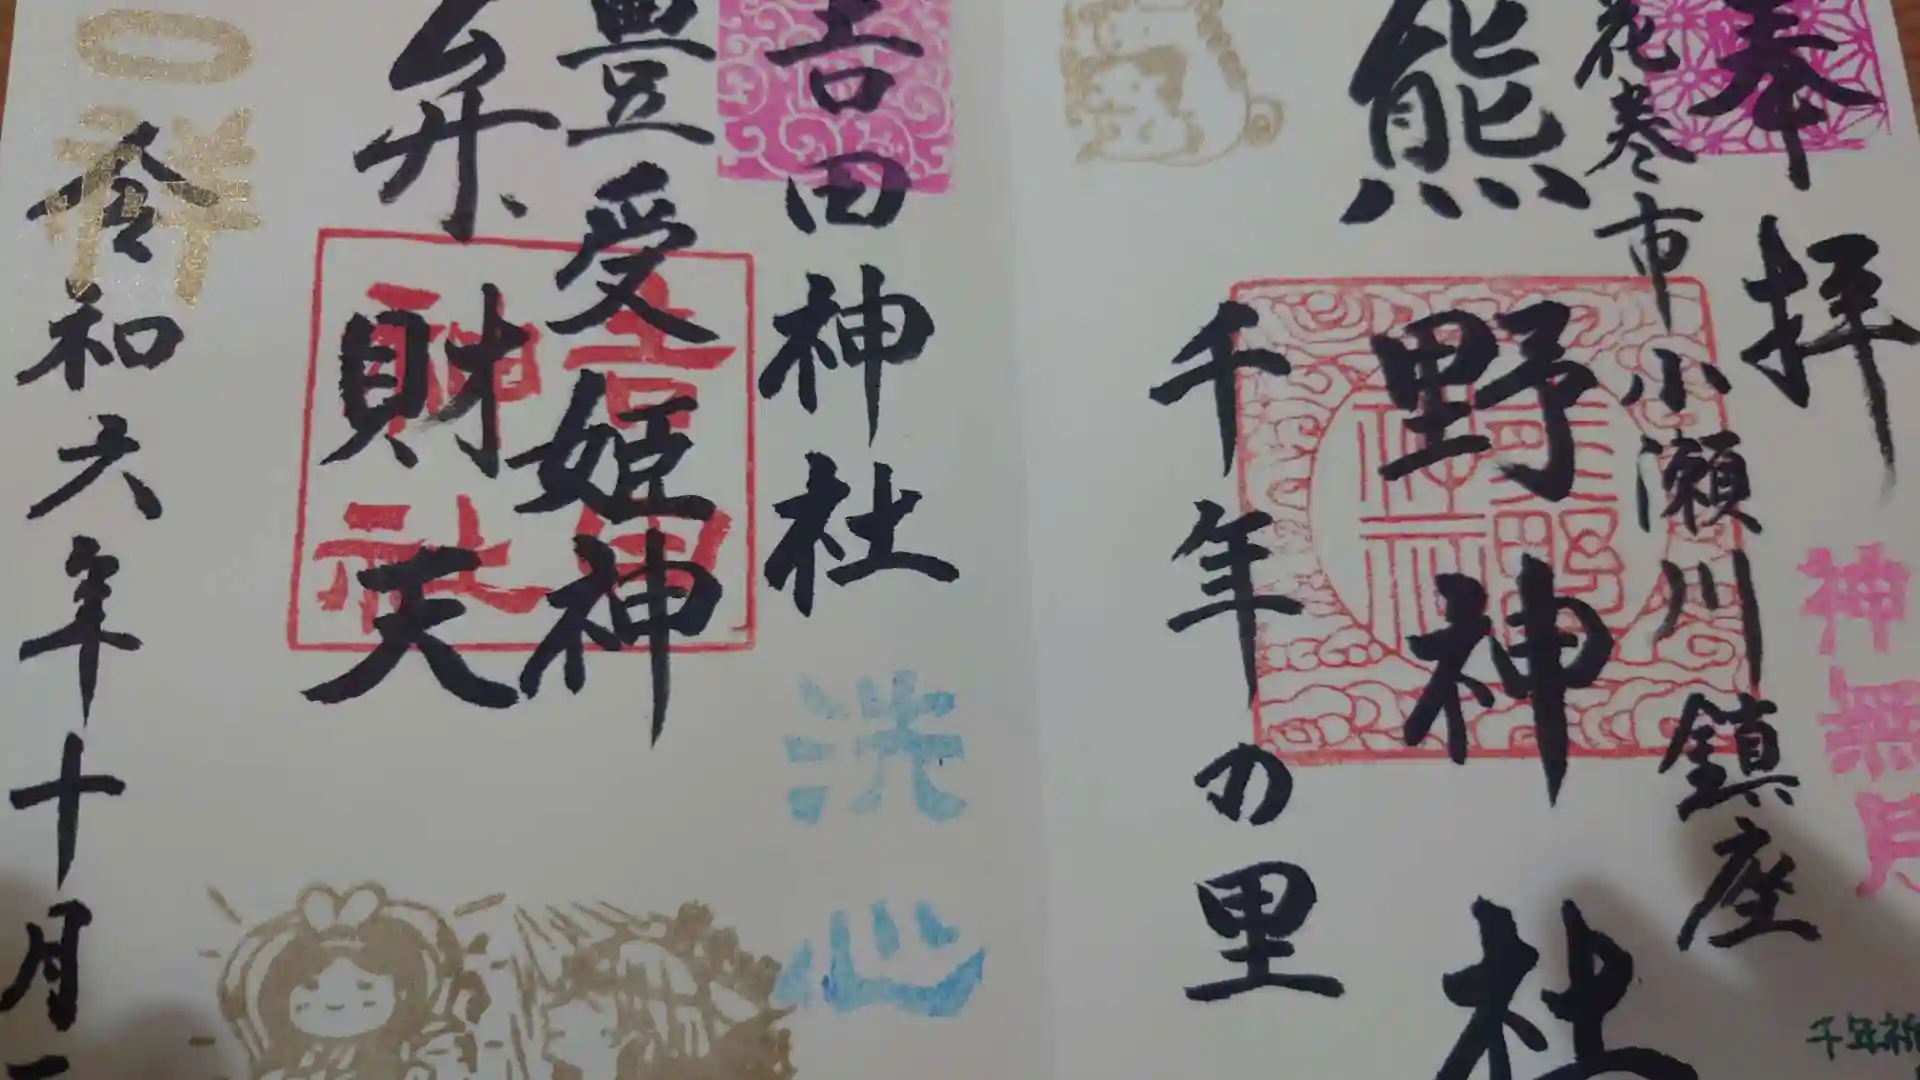 奉拝
花巻市小瀬川鎮座
熊野神社
千年の里
神無月
吉田神社
豊受姫神
弁財天
洗心
吉田神社
令和六年十月